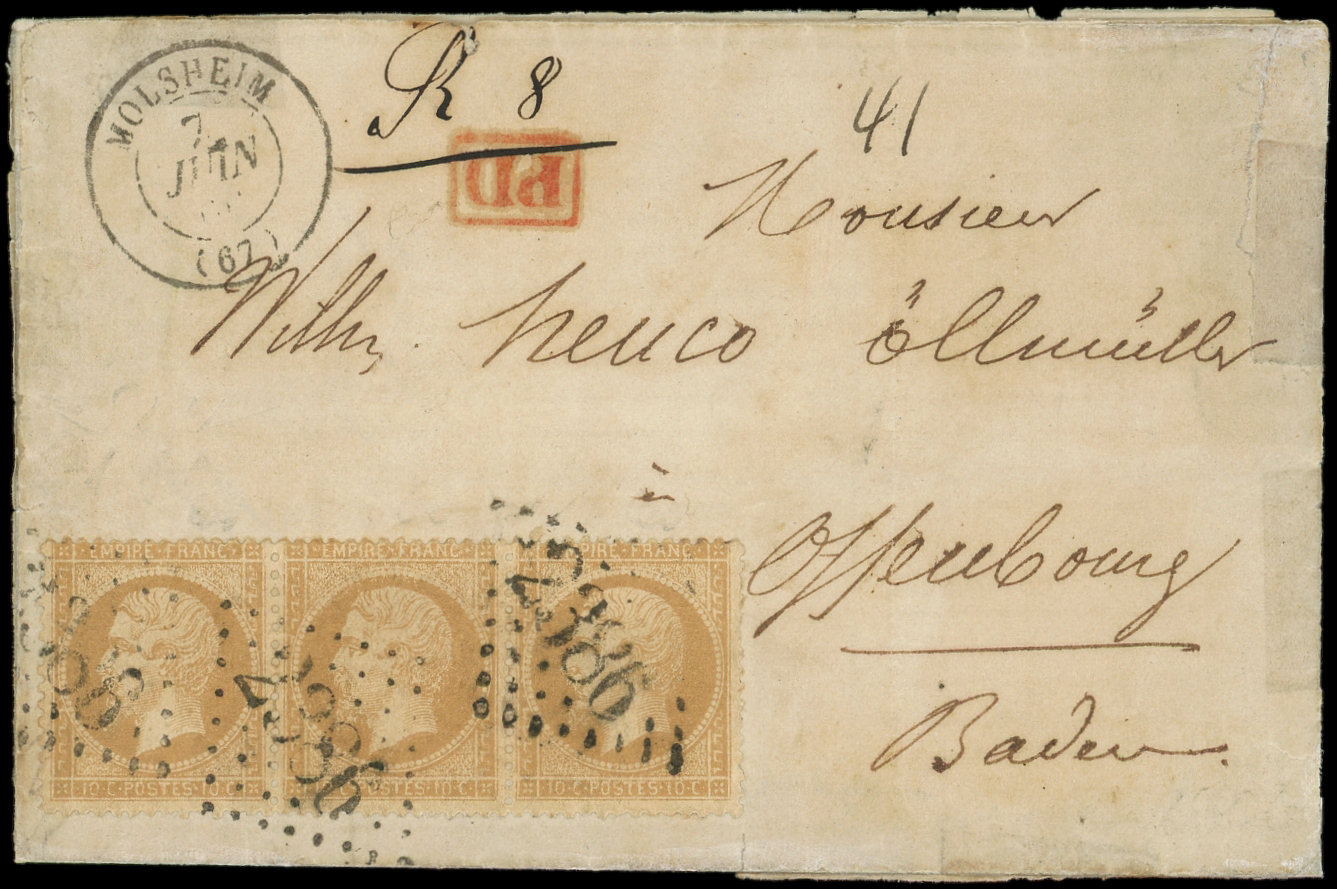 R 8
41
MOLSHEIM
7
JUIN
(67)
PD
Monsieur
Wilh. heuco öllmüller
à
Offenbourg
Baden
EMPIRE FRANC EMPIRE FRANC EMPIRE FRANC
86 2386 2386
10 C POSTES 10 C 10 C POSTES 10 C 10 C POSTES 10 C